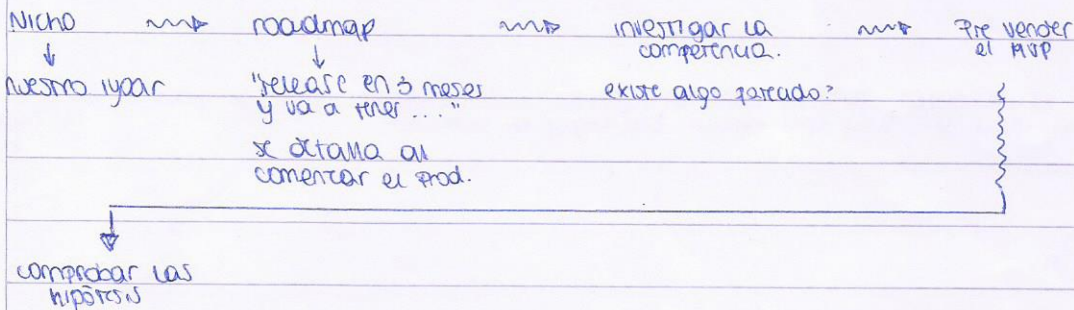 Nicho
roadmap
investigar la
competencia.
Pre vender
el MVP
nuestro lugar
"release en 3 meses
y va a tener ..."
se detalla al
comenzar el prod.
existe algo parecido?
comprobar las
hipótesis